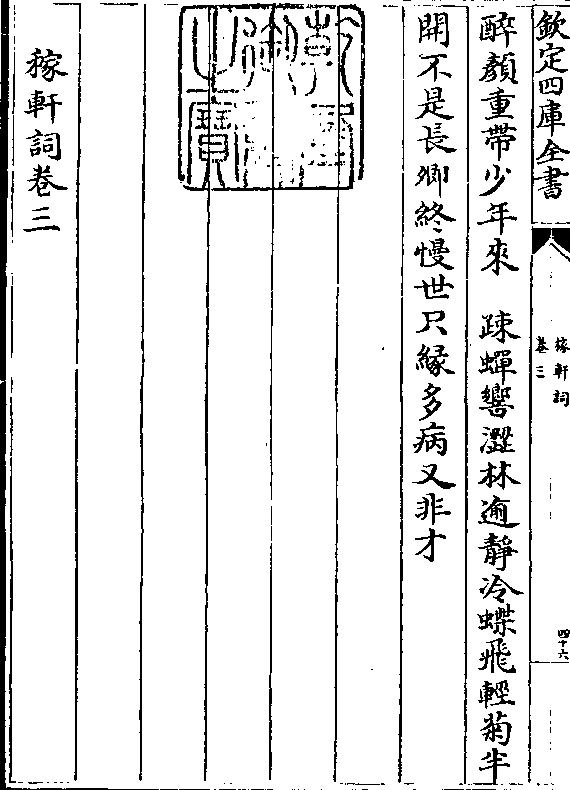 欽定四庫全書
稼軒詞
卷三
四十六
醉顏重帶少年來　疎蟬響澀林逾靜冷蝶飛輕菊半
開不是長卿終慢世只緣多病又非才
乾隆
御覽
之寶
稼軒詞卷三